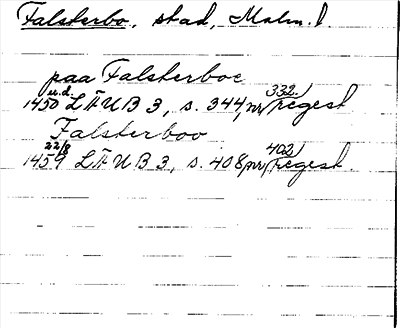 Falsterbo, stad, Malm. l.
paa Falsterboe
1450 u.d. LÄUB 3, s. 344, nr 332 (regest)
Falsterboo
1459 22/8 LÄUB 3, s. 408, nr 402 (regest.